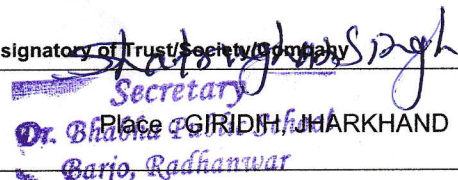 signatory of Trust/Society/Company
Shatrughan Singh
Secretary
Place : GIRIDIH, JHARKHAND
Dr. Bhabha Public School
Barjo, Radhanwar